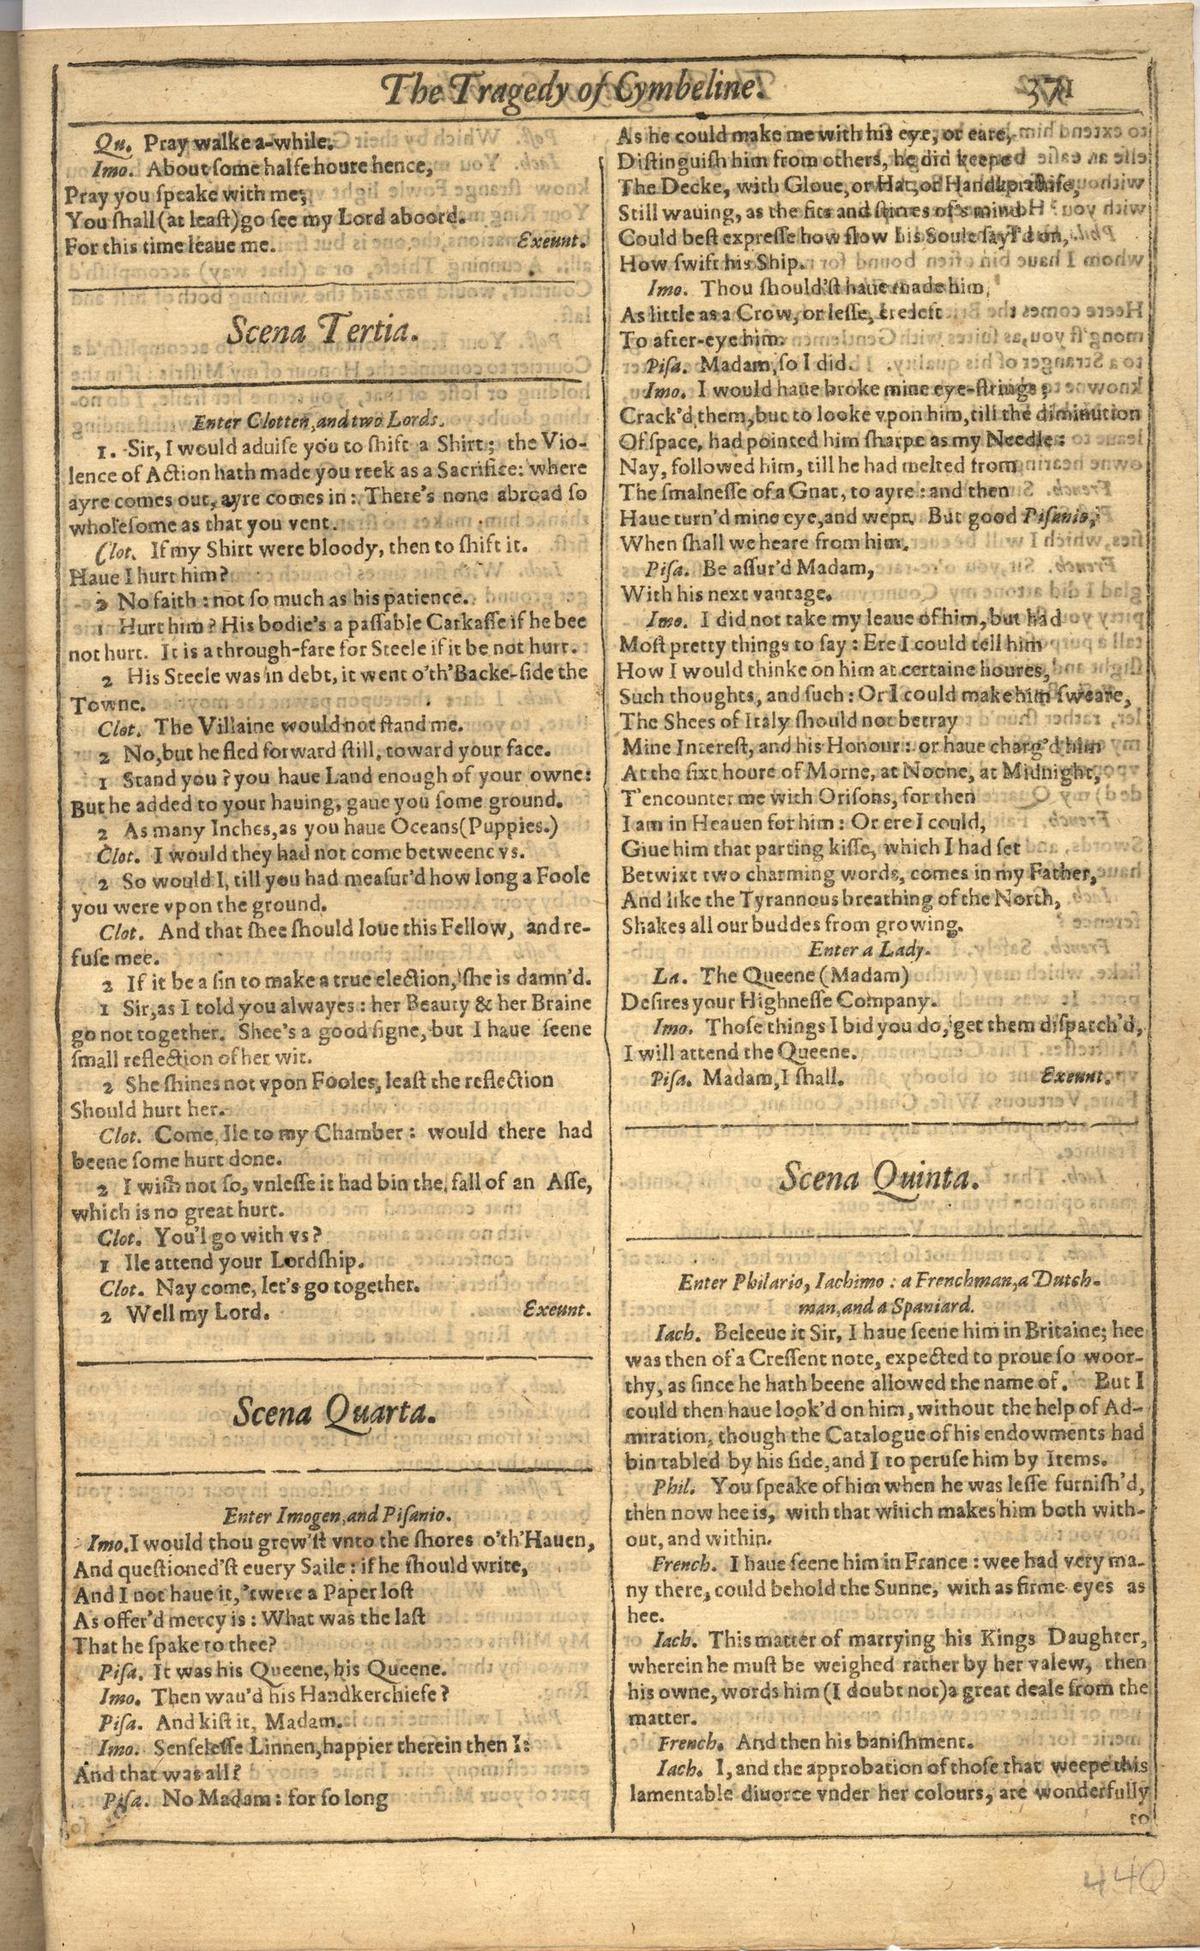 The Tragedy of Cymbeline. 371
Qu. Pray walke a-while.
Imo. About some halfe houre hence,
Pray you speake with me;
You shall (at least) go see my Lord aboord.
For this time leaue me. Exeunt.
Scena Tertia.
Enter Clotten, and two Lords.
1. Sir, I would aduise you to shift a Shirt; the Vio-
lence of Action hath made you reek as a Sacrifice: where
ayre comes out, ayre comes in: There's none abroad so
wholesome as that you vent.
Clot. If my Shirt were bloody, then to shift it.
Haue I hurt him?
2 No faith: not so much as his patience.
1 Hurt him? His bodie's a passable Carkasse if he bee
not hurt. It is a through-fare for Steele if it be not hurt.
2 His Steele was in debt, it went o'th'Backe-side the
Towne.
Clot. The Villaine would not stand me.
2 No, but he fled forward still, toward your face.
1 Stand you? you haue Land enough of your owne:
But he added to your hauing, gaue you some ground.
2 As many Inches, as you haue Oceans (Puppies.)
Clot. I would they had not come betweene vs.
2 So would I, till you had measur'd how long a Foole
you were vpon the ground.
Clot. And that shee should loue this Fellow, and re-
fuse mee.
2 If it be a sin to make a true election, she is damn'd.
1 Sir, as I told you alwayes: her Beauty & her Braine
go not together. Shee's a good signe, but I haue seene
small reflection of her wit.
2 She shines not vpon Fooles, least the reflection
Should hurt her.
Clot. Come, Ile to my Chamber: would there had
beene some hurt done.
2 I wish not so, vnlesse it had bin the fall of an Asse,
which is no great hurt.
Clot. You'l go with vs?
1 Ile attend your Lordship.
Clot. Nay come, let's go together.
2 Well my Lord. Exeunt.
Scena Quarta.
Enter Imogen, and Pisanio.
Imo. I would thou grew'st vnto the shores o'th'Hauen,
And questioned'st euery Saile: if he should write,
And I not haue it, 'twere a Paper lost
As offer'd mercy is: What was the last
That he spake to thee?
Pisa. It was his Queene, his Queene.
Imo. Then wau'd his Handkerchiefe?
Pisa. And kist it, Madam.
Imo. Senselesse Linnen, happier therein then I:
And that was all?
Pisa. No Madam: for so long
As he could make me with his eye, or eare,
Distinguish him from others, he did keepe
The Decke, with Gloue, or Hat, or Handkerchife,
Still wauing, as the fits and stirres of's mind
Could best expresse how slow his Soule sayl'd on,
How swift his Ship.
Imo. Thou should'st haue made him
As little as a Crow, or lesse, ere left
To after-eye him.
Pisa. Madam, so I did.
Imo. I would haue broke mine eye-strings;
Crack'd them, but to looke vpon him, till the diminution
Of space, had pointed him sharpe as my Needle:
Nay, followed him, till he had melted from
The smalnesse of a Gnat, to ayre: and then
Haue turn'd mine eye, and wept. But good Pisanio,
When shall we heare from him.
Pisa. Be assur'd Madam,
With his next vantage.
Imo. I did not take my leaue of him, but had
Most pretty things to say: Ere I could tell him
How I would thinke on him at certaine houres,
Such thoughts, and such: Or I could make him sweare,
The Shees of Italy should not betray
Mine Interest, and his Honour: or haue charg'd him
At the sixt houre of Morne, at Noone, at Midnight,
T'encounter me with Orisons, for then
I am in Heauen for him: Or ere I could,
Giue him that parting kisse, which I had set
Betwixt two charming words, comes in my Father,
And like the Tyrannous breathing of the North,
Shakes all our buddes from growing.
Enter a Lady.
La. The Queene (Madam)
Desires your Highnesse Company.
Imo. Those things I bid you do, get them dispatch'd,
I will attend the Queene.
Pisa. Madam, I shall. Exeunt.
Scena Quinta.
Enter Philario, Iachimo: a Frenchman, a Dutch-
man, and a Spaniard.
Iach. Beleeue it Sir, I haue seene him in Britaine; hee
was then of a Cressent note, expected to proue so woor-
thy, as since he hath beene allowed the name of. But I
could then haue look'd on him, without the help of Ad-
miration, though the Catalogue of his endowments had
bin tabled by his side, and I to peruse him by Items.
Phil. You speake of him when he was lesse furnish'd,
then now hee is, with that which makes him both with-
out, and within.
French. I haue seene him in France: wee had very ma-
ny there, could behold the Sunne, with as firme eyes as
hee.
Iach. This matter of marrying his Kings Daughter,
wherein he must be weighed rather by her valew, then
his owne, words him (I doubt not) a great deale from the
matter.
French. And then his banishment.
Iach. I, and the approbation of those that weepe this
lamentable diuorce vnder her colours, are wonderfully
to
44Q